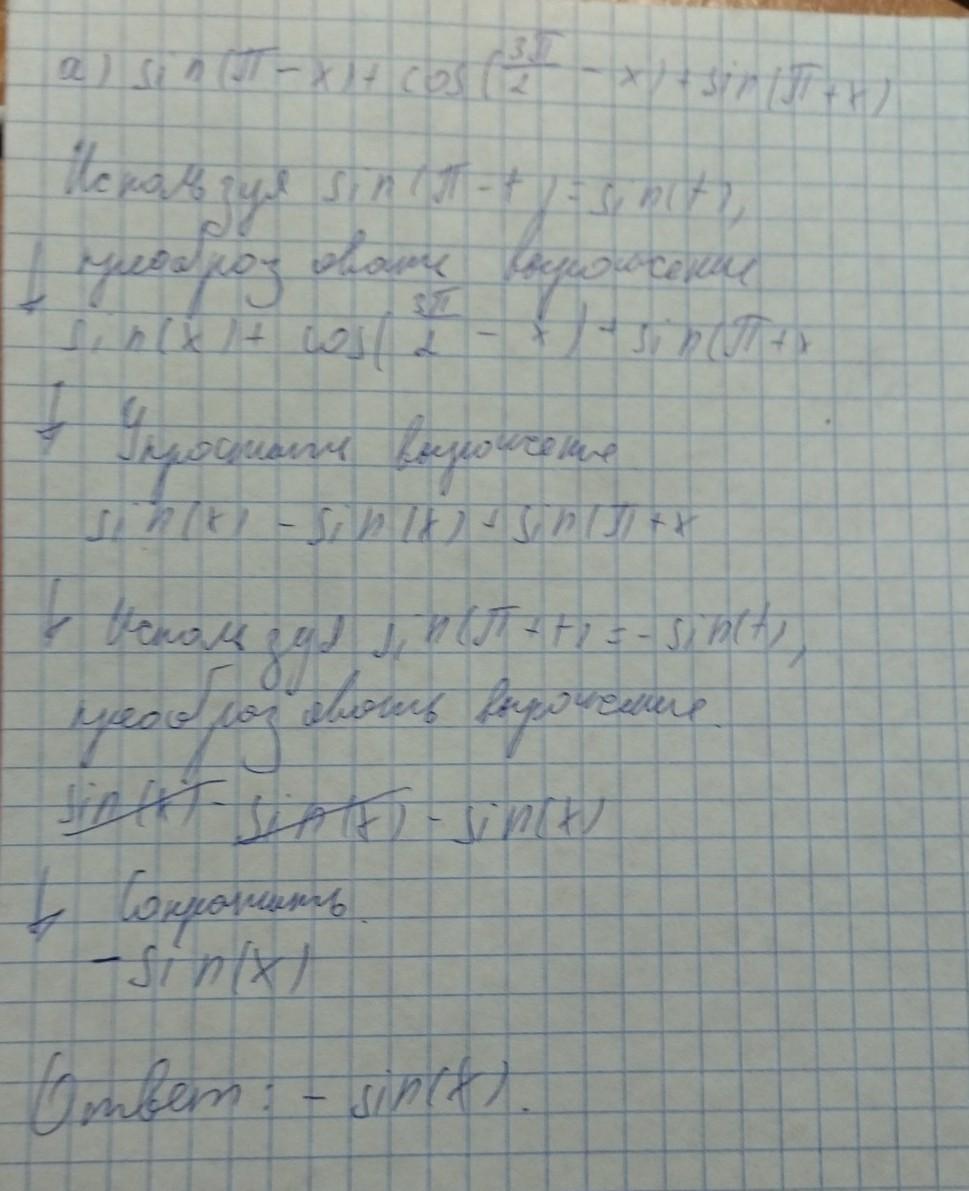 а) sin(π - x) + cos(3π/2 - x) + sin(π + x)
Используя sin(π - t) = sin(t),
преобразовать выражение
sin(x) + cos(3π/2 - x) + sin(π + x
Упростить выражение
sin(x) - sin(x) + sin(π + x
Используя sin(π + t) = - sin(t),
преобразовать выражение.
sin(x) - sin(x) - sin(x)
Сократить.
- sin(x)
Ответ: - sin(x).